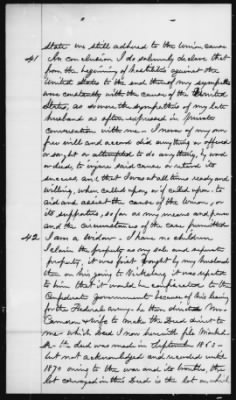 State we still adhered to the Union cause
41 In conclusion I do solemnly declare that
from the beginning of hostilities against the
United States to the end thereof my sympathies
were constantly with the cause of the United
States, as were the sympathies of my late
husband as often expressed in private
conversation with me - I never of my own
free will and accord did anything or offered
or sought or attempted to do anything, by word
or deed, to injure said cause or retard its
success, and that I was at all times ready and
willing, when called upon, or if called upon, to
aid and assist the cause of the Union, or
its supporters, so far as my means and power
and the circumstances of the case permitted
42 I am a Widow. I have no children,
I claim the property as my sole and separate
property, it was first bought by my husband
then on his going to Vicksburg it was reported
to him that it would be confiscated to the
Confederate Government because of his having
for the Federal army he then directed Mrs.
Cameron & wife to make the Deed direct to
me which Deed I now herewith file Marked
A. the deed was made in September 1863 -
but not acknowledged and recorded until
1870 owing to the war and its troubles, the
lot conveyed in this Deed is the lot on which